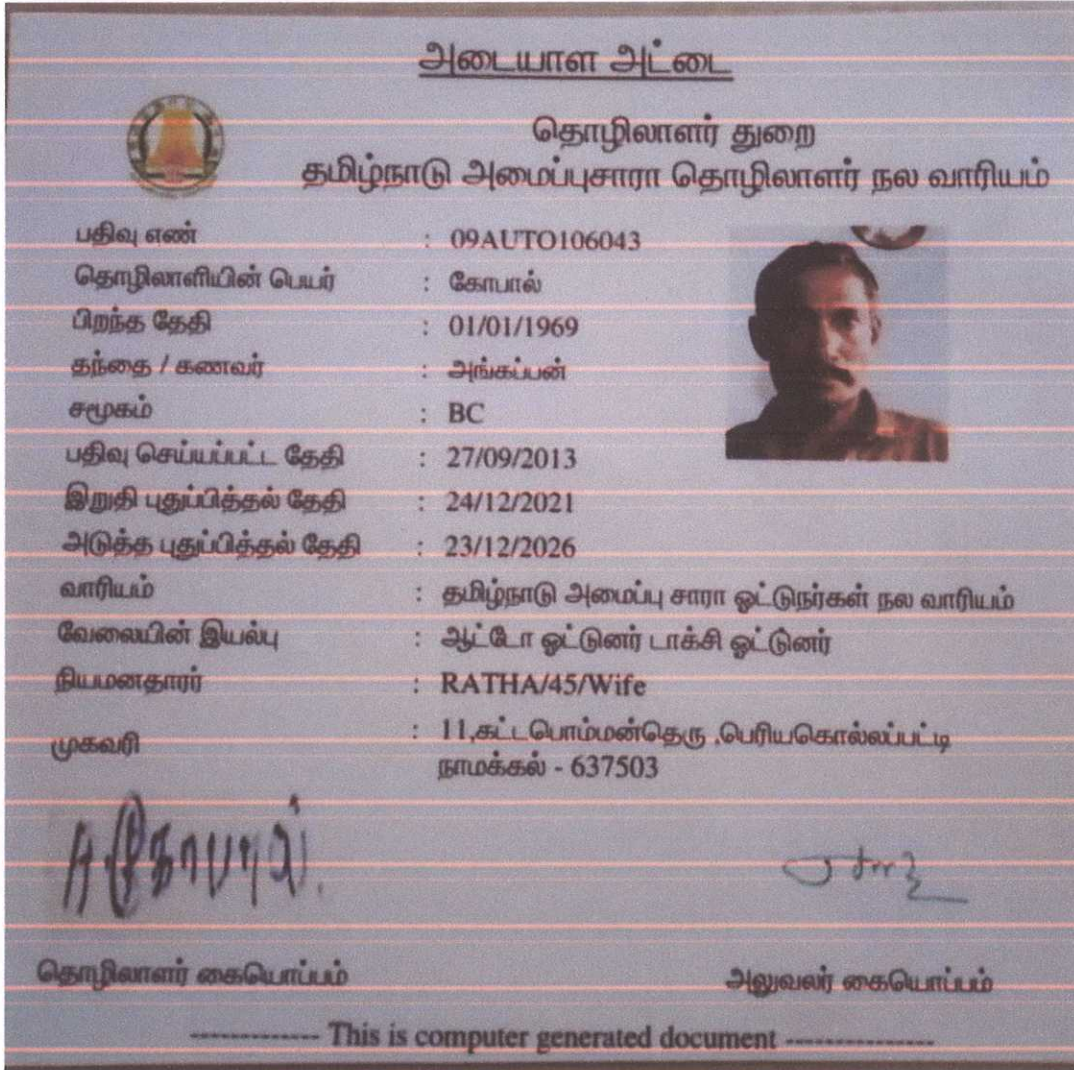 அடையாள அட்டை
தொழிலாளர் துறை
தமிழ்நாடு அமைப்புசாரா தொழிலாளர் நல வாரியம்
பதிவு எண் : 09AUTO106043
தொழிலாளியின் பெயர் : கோபால்
பிறந்த தேதி : 01/01/1969
தந்தை / கணவர் : அங்கப்பன்
சமூகம் : BC
பதிவு செய்யப்பட்ட தேதி : 27/09/2013
இறுதி புதுப்பித்தல் தேதி : 24/12/2021
அடுத்த புதுப்பித்தல் தேதி : 23/12/2026
வாரியம் : தமிழ்நாடு அமைப்பு சாரா ஓட்டுநர்கள் நல வாரியம்
வேலையின் இயல்பு : ஆட்டோ ஓட்டுனர் டாக்சி ஓட்டுனர்
நியமனதாரர் : RATHA/45/Wife
முகவரி : 11,கட்டபொம்மன்தெரு ,பெரியகொல்லப்பட்டி
நாமக்கல் - 637503
A.கோபால்.
தொழிலாளர் கையொப்பம் அலுவலர் கையொப்பம்
------------- This is computer generated document ---------------